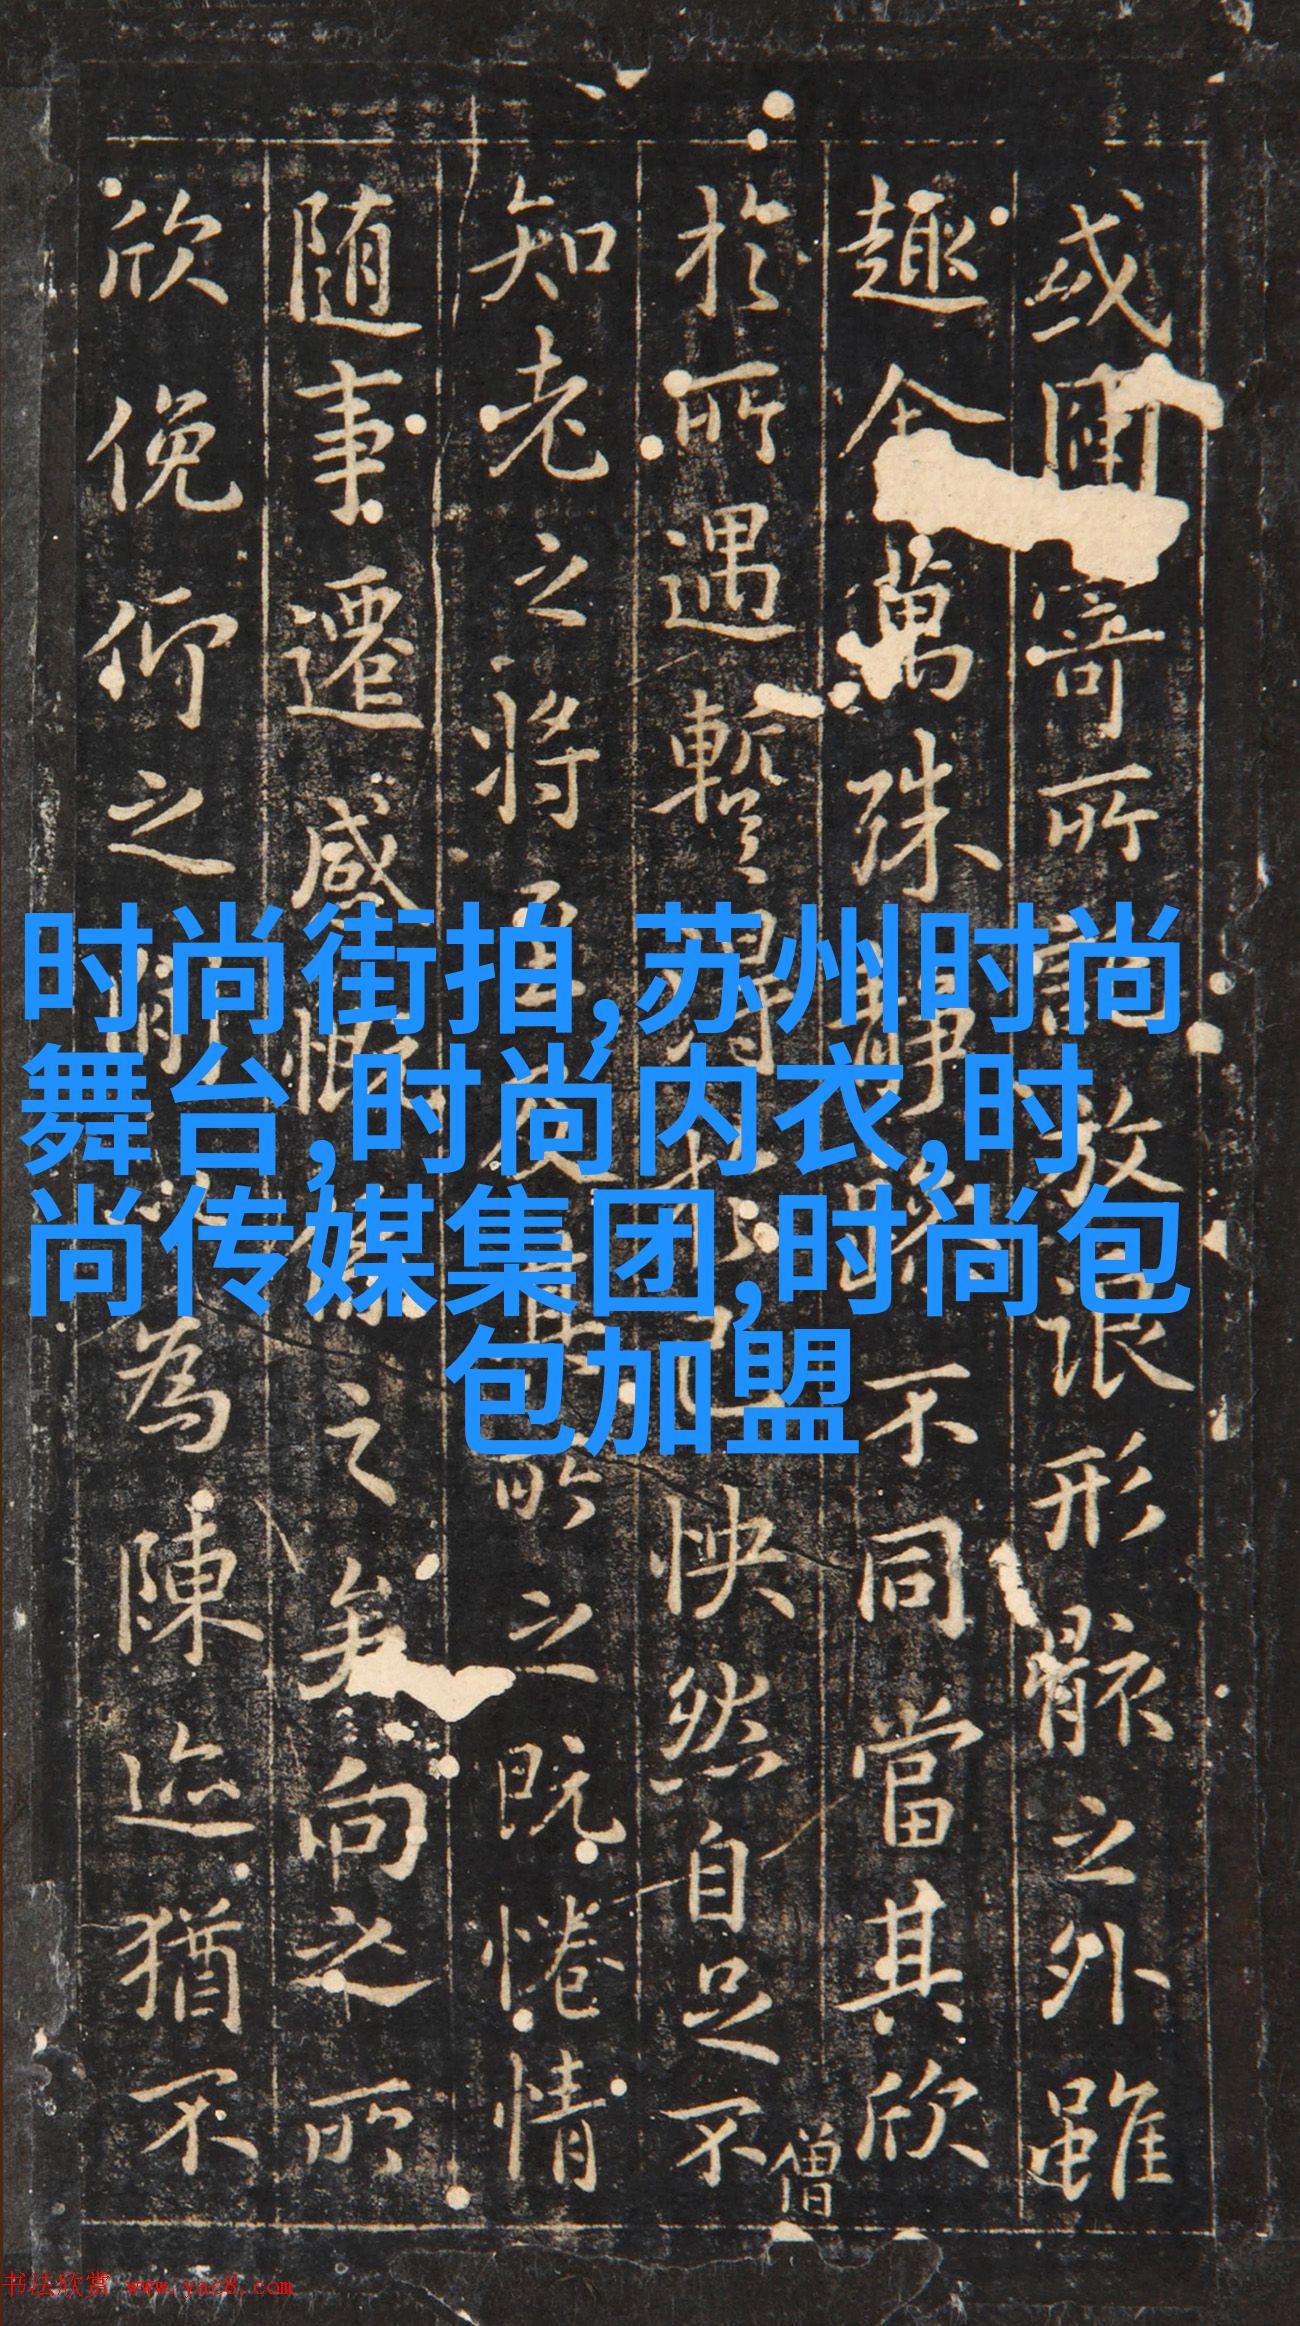 或因寄所託放浪形骸之外雖
趣舍萬殊靜躁不同當其欣
於所遇暫得於己怏然自足不
僧
知老之將至及其所之既惓情
随事遷感慨係之矣向之所
欣俛仰之間以為陳迹猶不
时尚街拍,苏州时尚
舞台,时尚内衣,时
尚传媒集团,时尚包
包加盟
书法欣赏 www.yac8.com